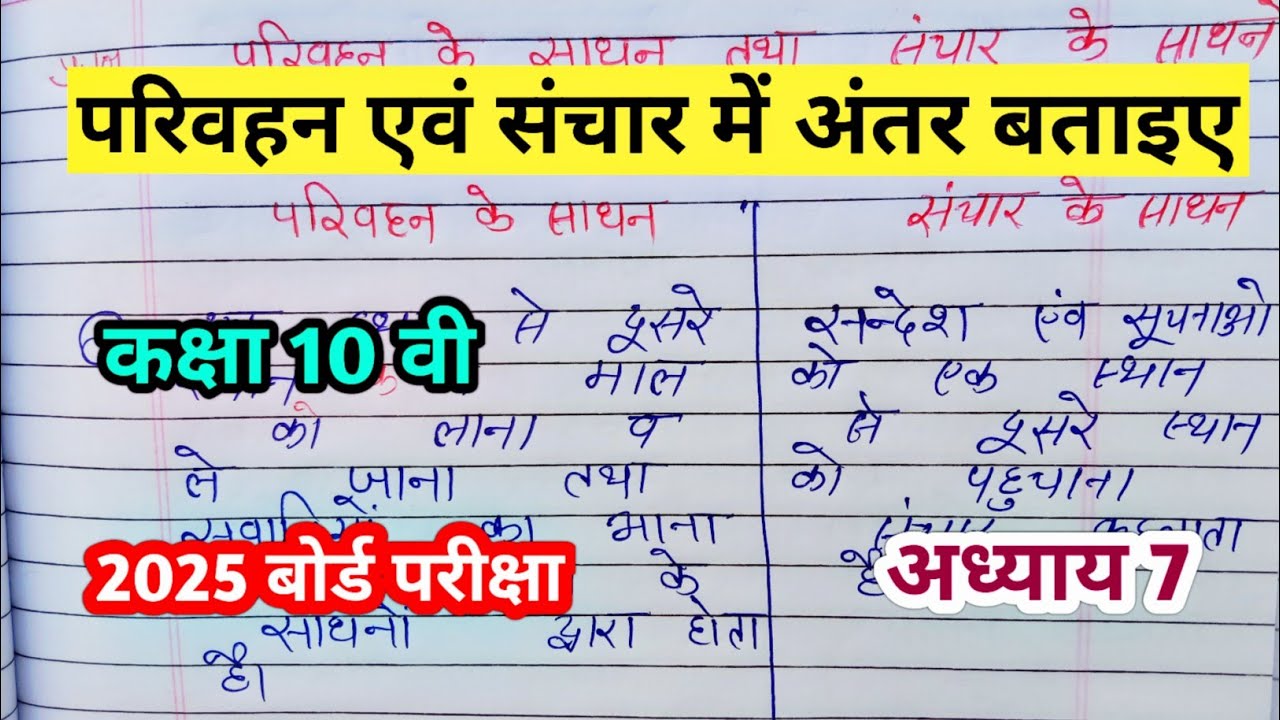 परिवहन के साधन तथा संचार के साधन
परिवहन एवं संचार में अंतर बताइए
परिवहन के साधन
संचार के साधन
से दूसरे
माल
को लाना व
ले जाना तथा
का आना
के
साधनों द्वारा होता
है।
सन्देश एंव सूचनाओ
को एक स्थान
से दूसरे स्थान
को पहुचाना
संचार कहलाता
है
कक्षा 10 वी
2025 बोर्ड परीक्षा
अध्याय 7